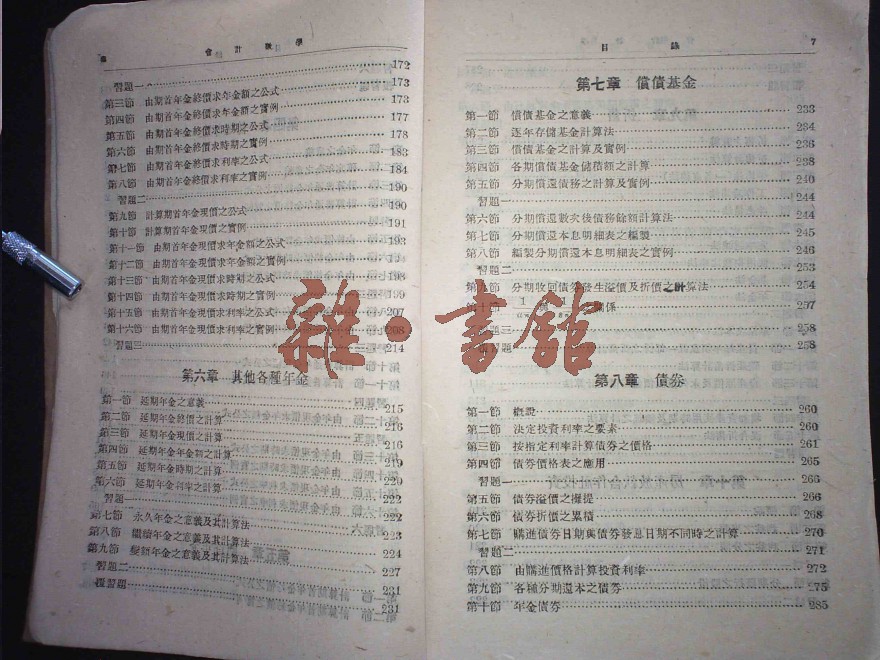 會計數學
習題一 172
第三節 由期首年金終價求年金額之公式 173
第四節 由期首年金終價求年金額之實例 173
第五節 由期首年金終價求時期之公式 177
第六節 由期首年金終價求時期之實例 178
第七節 由期首年金終價求利率之公式 183
第八節 由期首年金終價求利率之實例 184
習題二 190
第九節 計算期首年金現價之公式 190
第十節 計算期首年金現價之實例 191
第十一節 由期首年金現價求年金額之公式 193
第十二節 由期首年金現價求年金額之實例
第十三節 由期首年金現價求時期之公式 198
第十四節 由期首年金現價求時期之實例 199
第十五節 由期首年金現價求利率之公式 207
第十六節 由期首年金現價求利率之實例 208
習題三 214
第六章 其他各種年金
第一節 延期年金之意義 215
第二節 延期年金終價之計算 216
第三節 延期年金現價之計算 216
第四節 延期年金年金額之計算 219
第五節 延期年金時期之計算 220
第六節 延期年金利率之計算 222
習題一 222
第七節 永久年金之意義及其計算法 223
第八節 繼續年金之意義及其計算法 224
第九節 變額年金之意義及其計算法 227
習題二 231
復習題 231
目錄 7
第七章 償債基金
第一節 償債基金之意義 233
第二節 逐年存儲基金計算法 234
第三節 償債基金之計算及實例 236
第四節 各期償債基金儲積額之計算 238
第五節 分期償還債務之計算及實例 240
習題一 244
第六節 分期償還數次後債務餘額計算法 244
第七節 分期償還本息明細表之編製 245
第八節 編製分期償還本息明細表之實例 246
習題二 253
第九節 分期收回債券發生溢價及折價之計算法 254
第十節 關係 257
習題三 258
復習題 258
第八章 債券
第一節 概說 260
第二節 決定投資利率之要素 260
第三節 按指定利率計算債券之價格 261
第四節 債券價格表之應用 265
習題一 266
第五節 債券溢價之攤提 266
第六節 債券折價之累積 268
第七節 購進債券日期與債券發息日期不同時之計算 270
習題二 271
第八節 由購進價格計算投資利率 272
第九節 各種分期還本之債券 275
第十節 年金債券 285
雜·書館